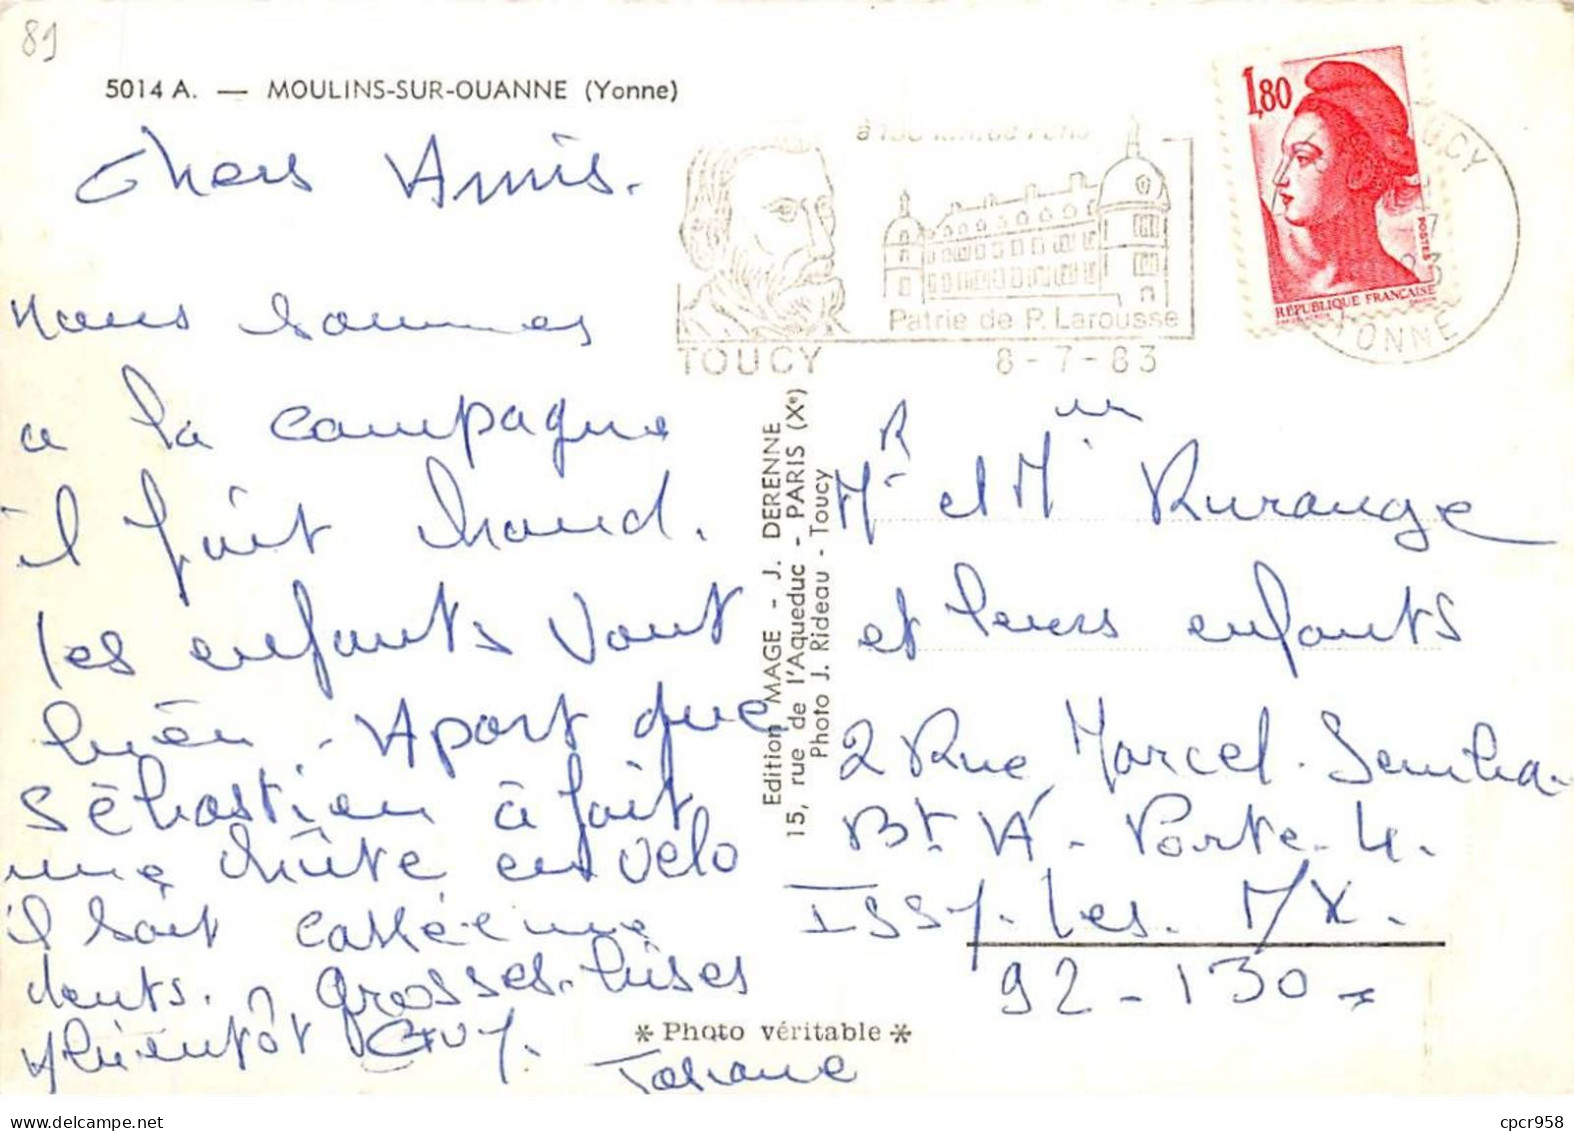 89
5014 A. — MOULINS-SUR-OUANNE (Yonne)
Chers Amis.
nous sommes
a la campagne
il fait chaud.
les enfants vont
bien. Apart que
Sébastien à fait
une chûte en velo
il sait cassée une
dents. grosses. bises
Abientôt Guy.
Josiane
à 150 km. de Paris
Patrie de P. Larousse
TOUCY 8-7-83
1,80
POSTES
RÉPUBLIQUE FRANÇAISE
TOUCY
YONNE
Edition MAGE - J. DERENNE
15, rue de l'Aqueduc - PARIS (Xe)
Photo J. Rideau - Toucy
Mr et Mme Rurange
et leurs enfants
2 Rue Marcel. Semba.
Bt. A - Porte. 4.
ISSY. Les. MX.
92-130
* Photo véritable *
cpcr958